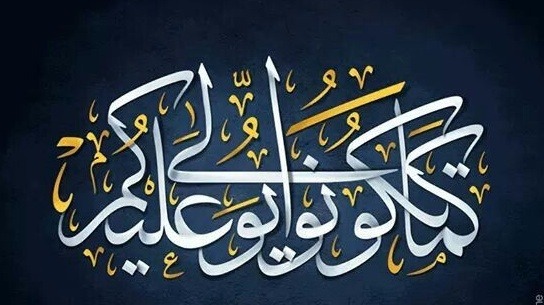 كَمَا تَكُونُوا يُوَلَّى عَلَيْكُمْ